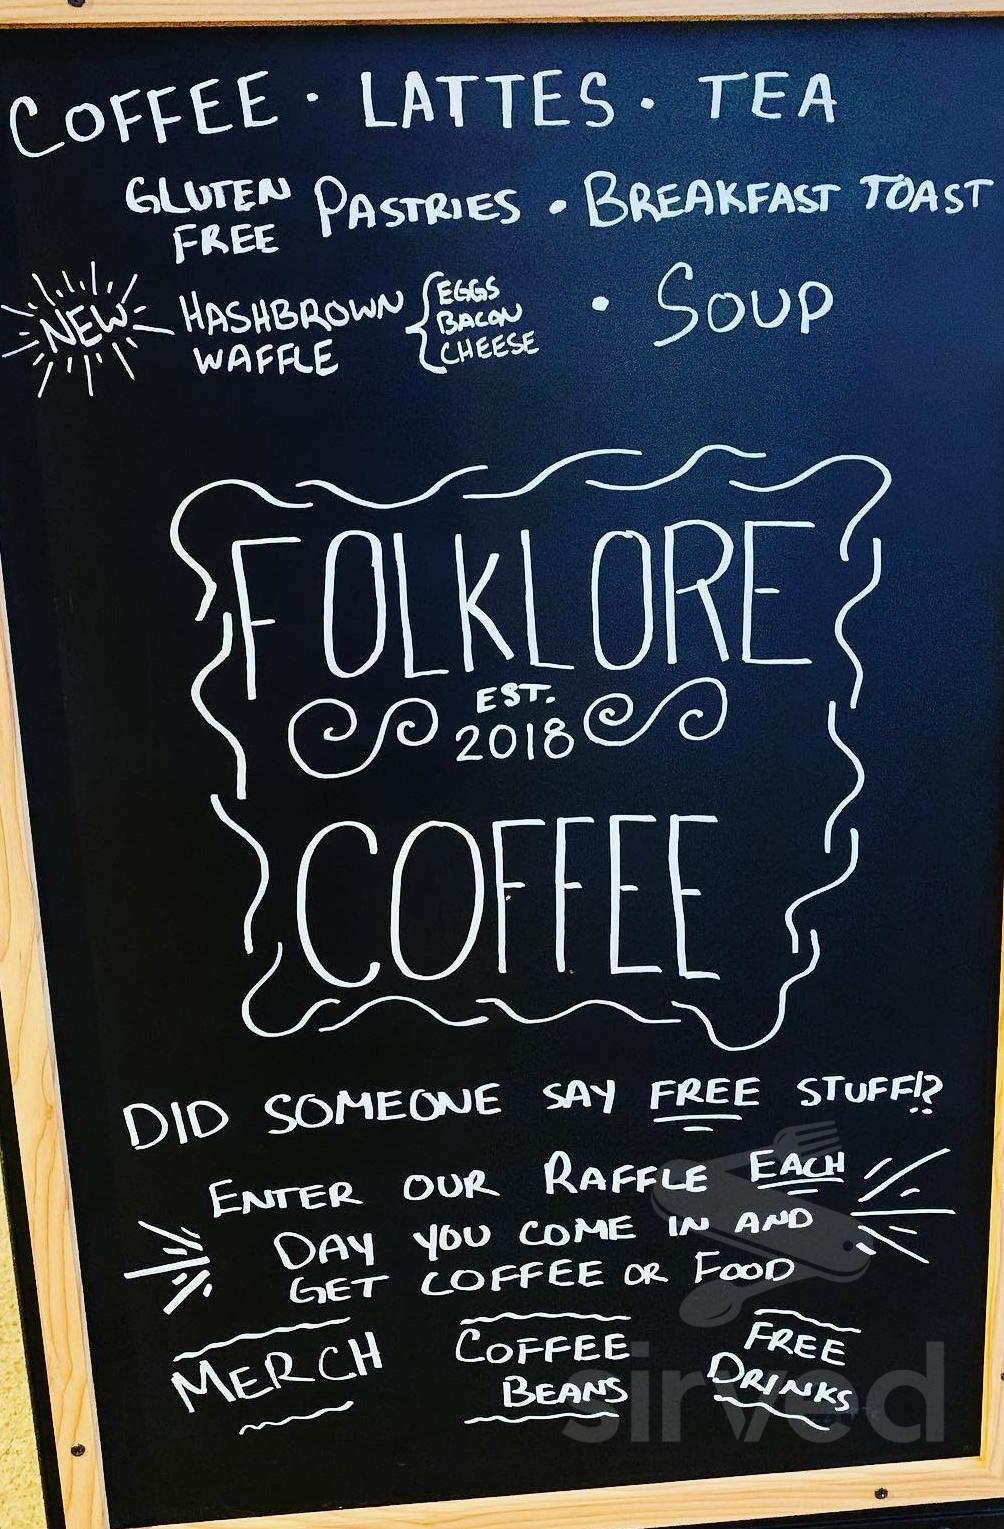 COFFEE · LATTES · TEA
GLUTEN FREE PASTRIES · BREAKFAST TOAST
NEW HASHBROWN WAFFLE { EGGS BACON CHEESE · SOUP
FOLKLORE
EST.
2018
COFFEE
DID SOMEONE SAY FREE STUFF!?
ENTER OUR RAFFLE EACH
DAY YOU COME IN AND
GET COFFEE OR FOOD
MERCH
COFFEE
BEANS
FREE
DRINKS
sirved